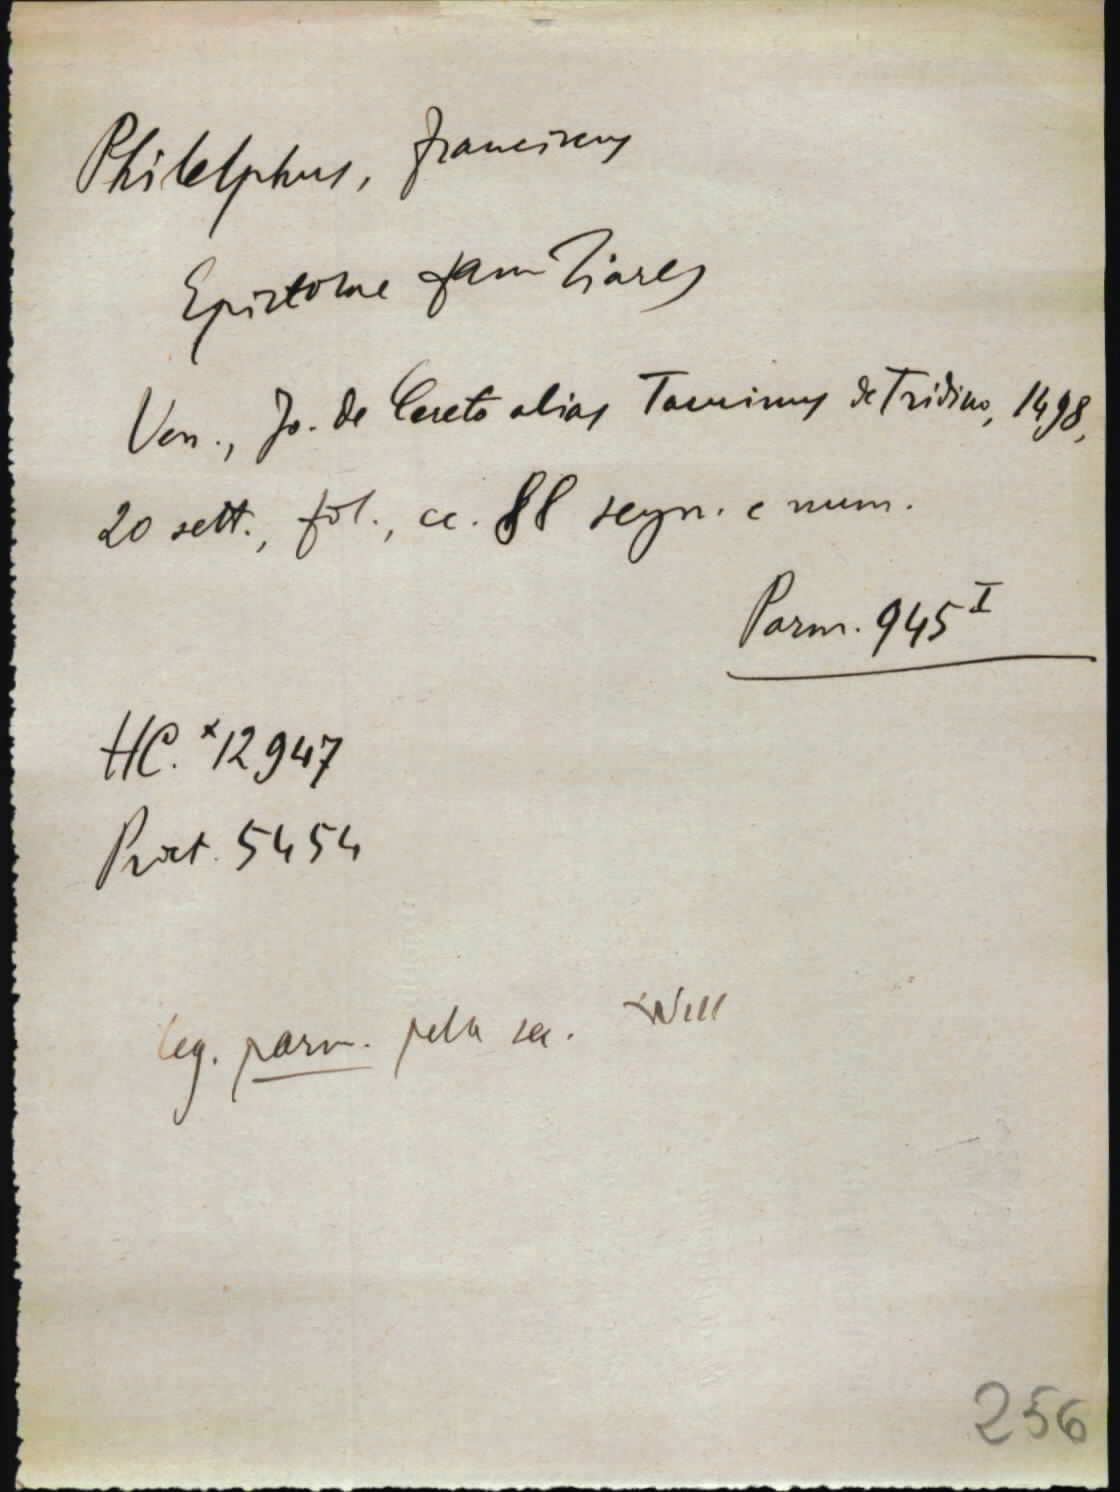 Philelphus, Franciscus
Epistolae familiares
Ven., Jo. de Cereto alias Tacuinus de Tridino, 1498,
20 sett., fol., cc. 88 segn. e num.
Parm. 945 I
HC. *12947
Proct. 5454
leg. parm. pelle sec.
256